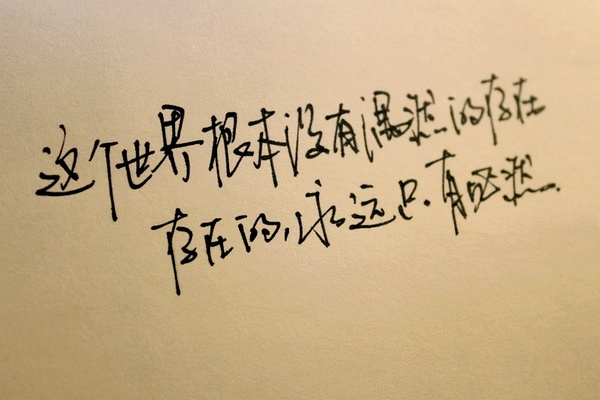 这个世界根本没有偶然的存在
存在的，永远只有必然.